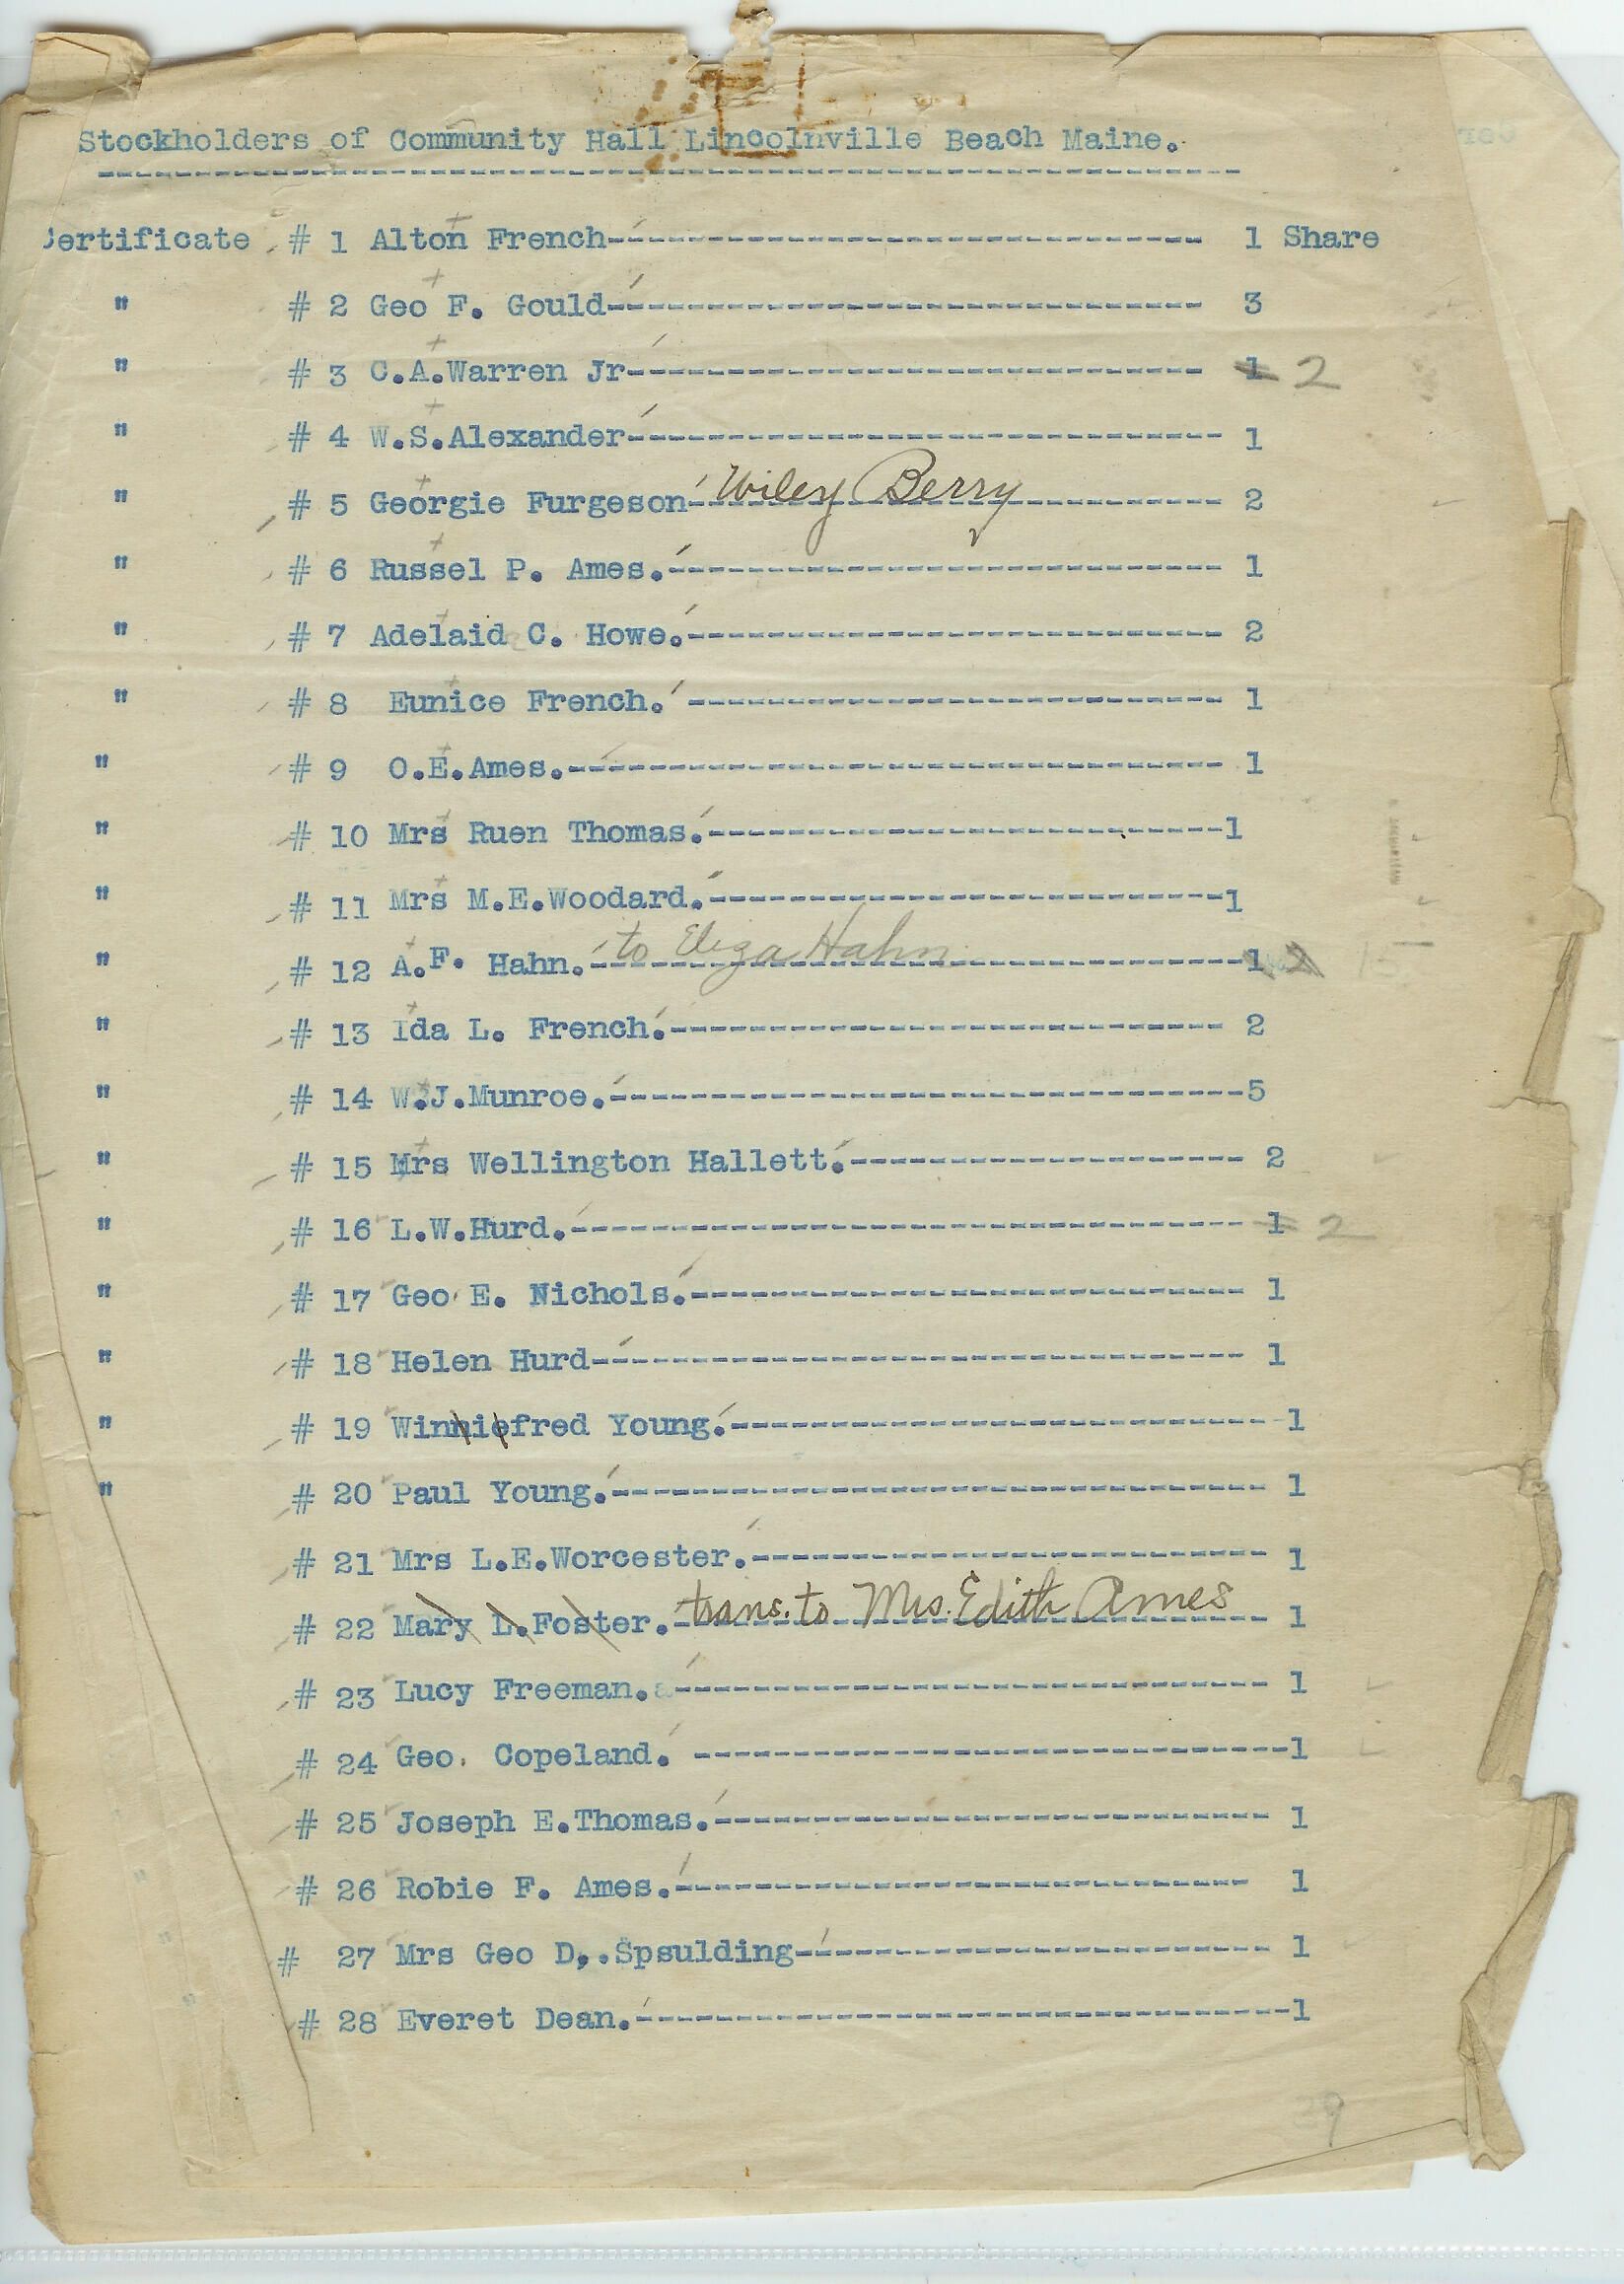 Stockholders of Community Hall Lincolnville Beach Maine.
Certificate # 1 Alton French------------------------------ 1 Share
" # 2 Geo F. Gould------------------------------ 3
" # 3 C.A.Warren Jr----------------------------- 1 2
" # 4 W.S.Alexander------------------------------ 1
" # 5 Georgie Furgeson--------------------------- 2 Wiley Berry
" # 6 Russel P. Ames.---------------------------- 1
" # 7 Adelaid C. Howe.--------------------------- 2
" # 8 Eunice French. --------------------------- 1
" # 9 O.E.Ames.--------------------------------- 1
" # 10 Mrs Ruen Thomas.--------------------------1
" # 11 Mrs M.E.Woodard.--------------------------1
" # 12 A.F. Hahn.---------------------------------1 2 to Eliza Hahn
" # 13 Ida L. French.---------------------------- 2
" # 14 W.J.Munroe.--------------------------------5
" # 15 Mrs Wellington Hallett.-------------------- 2
" # 16 L.W.Hurd.---------------------------------- 1 2
" # 17 Geo E. Nichols.---------------------------- 1
" # 18 Helen Hurd--------------------------------- 1
" # 19 Winniefred Young.---------------------------1
" # 20 Paul Young.--------------------------------- 1
# 21 Mrs L.E.Worcester.-------------------------- 1
# 22 Mary L.Foster.------------------------------ 1 trans. to Mrs. Edith Ames
# 23 Lucy Freeman.------------------------------ 1
# 24 Geo. Copeland. ------------------------------1
# 25 Joseph E.Thomas.---------------------------- 1
# 26 Robie F. Ames.----------------------------- 1
# 27 Mrs Geo D,.Spsulding------------------------ 1
# 28 Everet Dean.---------------------------------1